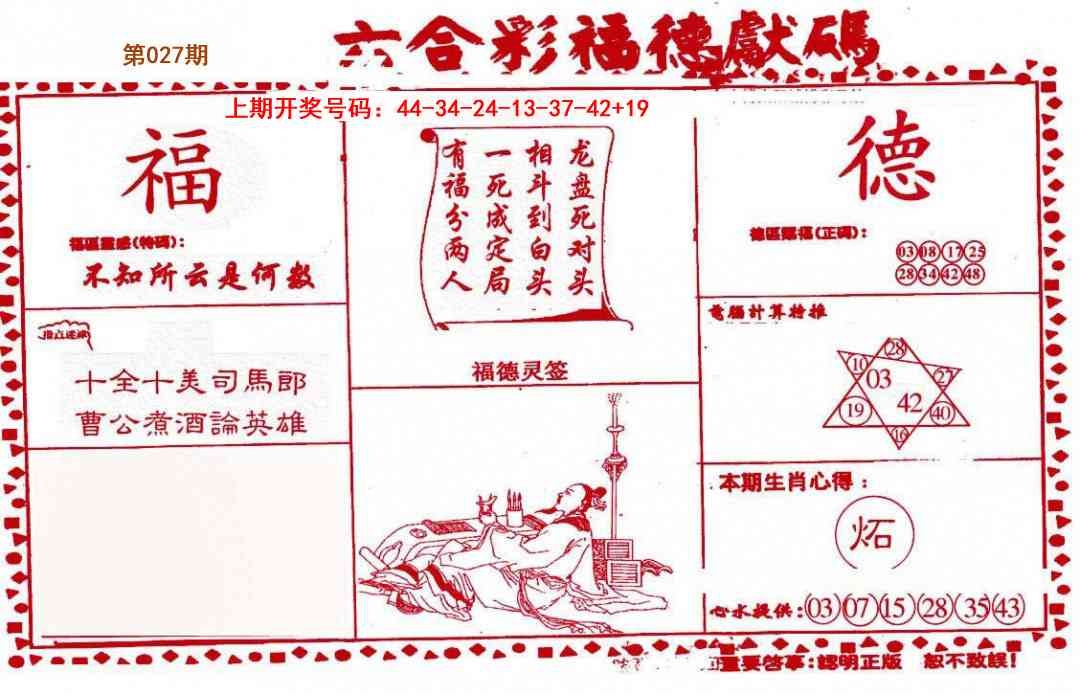 六合彩福德獻碼
第027期
上期开奖号码：44-34-24-13-37-42+19
福
福區靈感(特碼)：
不知所云是何数
十全十美司馬郎
曹公煮酒論英雄
龙盘死对头
相斗到白头
一死成定局
有福分两人
福德灵签
德
德區賜福(正碼)：
03 08 17 25
28 34 42 48
電腦計算特推
28
10 03 27
19 42 40
16
本期生肖心得：
炻
心水提供：03 07 15 28 35 43
重要啓事：認明正版 恕不致誤！